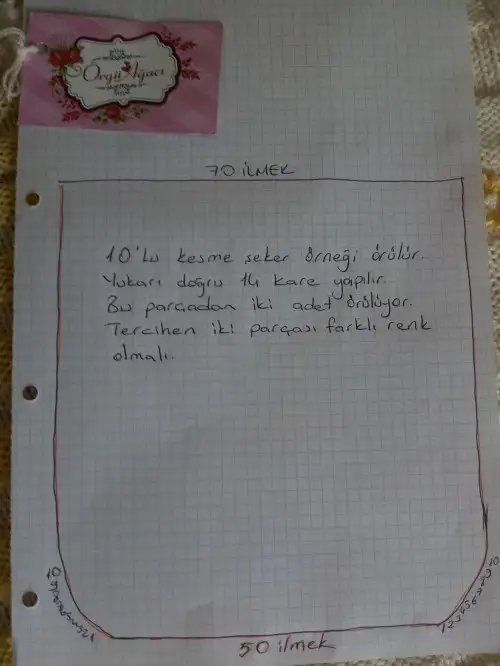 Örgü Ağacı
70 İLMEK
10'lu kesme şeker örneği örülür.
Yukarı doğru 14 kare yapılır.
Bu parçadan iki adet örülüyor.
Tercihen iki parçası farklı renk
olmalı.
10 9 8 7 6 5 4 3 2 1
1 2 3 4 5 6 7 8 9 10
50 ilmek